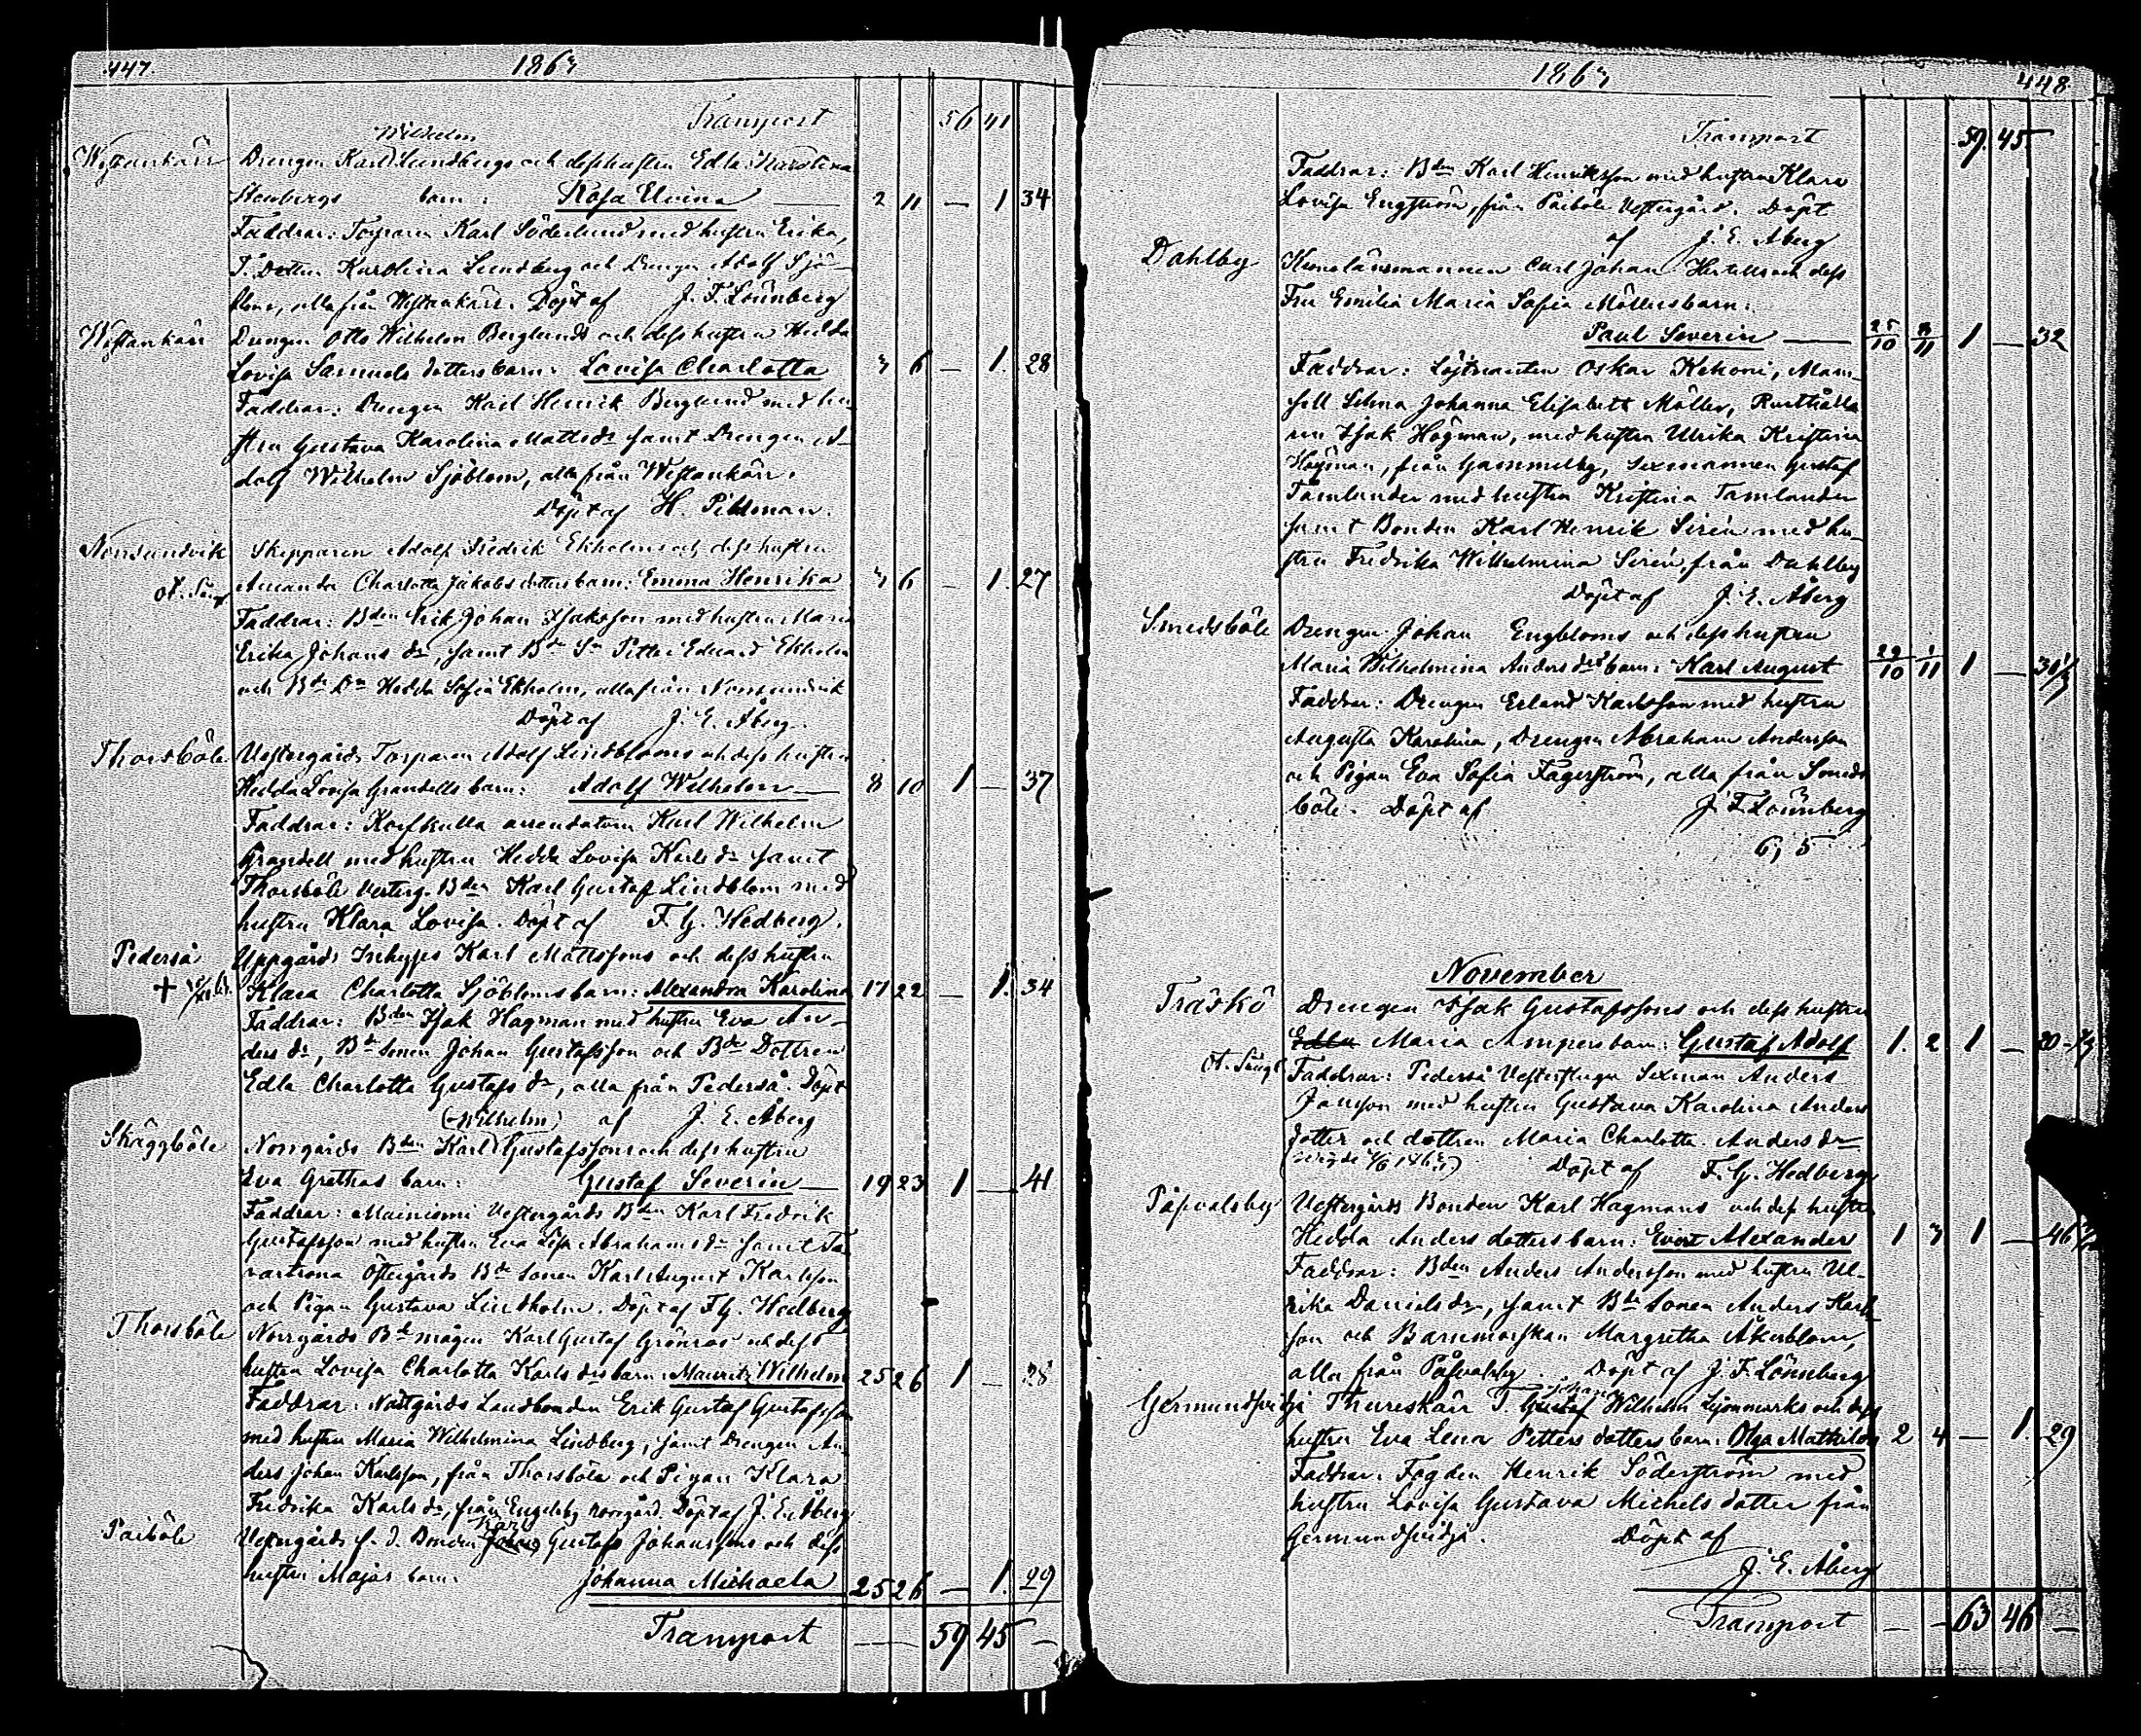 447. 1867
Transport 56 41
Wilhelm
Westankärr Drengen Karl Lundbergs och dess hustru Edla Karolina
Stenbergs barn: Rosa Elvina 2 11 — 1 34
Faddrar: Torparen Karl Söderlund med hustru Erika,
T. Dottren Karolina Lundberg och Drengen Adolf Sjö-
blom, alla från Westankärr. Döpt af J. F. Lönnberg
Westankärr Drengen Otto Wilhelm Berglunds och dess hustru Hedda
Lovisa Samuels dotters barn: Lovisa Charlotta 3 6 — 1. 28
Faddrar: Drengen Karl Henrik Berglund med hu-
stru Gustava Karolina Matts dr samt Drengen A-
dolf Wilhelm Sjöblom, alla från Westankärr.
Döpt af H. Pihlman.
Norrsundvik Skepparen Adolf Fredrik Ekholms och dess hustru
Amanda Charlotta Jakobs dotters barn: Emma Henrika 3 6 — 1. 27
Faddrar: Bden Erik Johan Isaksson med hustru Maria
Erika Johans dr, samt Bde Sn Petter Eduard Ekholm
och Bde Dn Hedda Sofia Ekholm, alla från Norrsundvik
Döpt af J. E. Åberg.
Thorsböle Westergårds Torparen Adolf Lindbloms och dess hustru
Hedda Lovisa Grandells barn: Adolf Wilhelm 8 10 1 — 37
Faddrar: Korskulla arrendatorn Karl Wilhelm
Grandell med hustru Hedda Lovisa Karls dr samt
Thorsböle Vesterg. Bden Karl Gustaf Lindblom med
hustru Klara Lovisa. Döpt af F. G. Hedberg.
Pederså Uppgårds Inhyses Karl Mattssons och dess hustru
+ Klara Charlotta Sjöbloms barn: Alexandra Karolina 17 22 — 1. 34
Faddrar: Bden Isak Hagman med hustru Eva An-
ders dr, Bde Sonen Johan Gustafsson och Bde Dottren
Edla Charlotta Gustafs dr, alla från Pederså. Döpt
(Wilhelm) af J. E. Åberg
Skäggböle Norrgårds Bden Karl Gustafssons och dess hustru
Eva Grethas barn: Gustaf Severin 19 23 1 — 41
Faddrar: Mainiemi Vestergårds Bden Karl Fredrik
Gustafsson med hustru Eva Lisa Abrahams dr samt Ta-
vastrona Östergårds Bde Sonen Karl August Karlsson
och Pigan Gustava Lindholm. Döpt af F. G. Hedberg
Thorsböle Norrgårds Bde mågen Karl Gustaf Grönros och dess
hustru Lovisa Charlotta Karls drs barn: Mauritz Wilhelm 25 26 1 — 28
Faddrar: Nättgårds Landbonden Erik Gustaf Gustafsson
med hustru Maria Wilhelmina Lindberg, samt Drengen An-
ders Johan Karlsson, från Thorsböle och Pigan Klara
Fredrika Karls dr, från Engelsby norrgård. Döpt af J. E. Åberg
Karl
Paiböle Vestergårds f. d. Bonden Johan Gustafs Johanssons och dess
hustru Majas barn: Johanna Michaela 25 26 — 1. 29
Transport — 59 45 —
1867 448
Transport 59. 45
Faddrar: Bden Karl Henriksson med hustru Klara
Lovisa Engström, från Paiböle Vestergård. Döpt
af J. E. Åberg
Dahlby Kronolänsmannen Carl Johan Hertells och dess
Fru Emilia Maria Sofia Möllers barn:
Paul Severin 25/10 3/11 1 — 32
Faddrar: Löjtnanten Oskar Kekoni, Mam-
sell Selma Johanna Elisabeth Möller, Rusthålla-
ren Isak Högman, med hustru Ulrika Kristina
Högman, från Gammelby, Sexmannen Gustaf
Tamlander med hustru Kristina Tamlander
samt Bonden Karl Henrik Sirén med hu-
stru Fredrika Wilhelmina Sirén, från Dahlby
Döpt af J. E. Åberg
Smedsböle Drengen Johan Engbloms och dess hustru
Maria Wilhelmina Anders drs barn: Karl August 29/10 1/11 1 —
Faddrar: Drengen Erland Karlsson med hustru
Augusta Karolina, Drengen Abraham Andersson
och Pigan Eva Sofia Fagerström, alla från Smeds-
böle. Döpt af J. F. Lönnberg
6, 5
November
Träskö Drengen Isak Gustafssons och dess hustru
Edla Maria Ampers barn: Gustaf Adolf 1. 2 1 —
Faddrar: Pederså Vesterstugu Sexman Anders
Jansson med hustru Gustava Karolina Anders
dotter och dottren Maria Charlotta Anders dr
Döpt af F. G. Hedberg
Påpvalsby Vestergårds Bonden Karl Hagmans och dess hustru
Hedda Anders dotters barn: Evert Alexander 1 3 1 — 46
Faddrar: Bden Anders Andersson med hustru Ul-
rika Daniels dr, samt Bde Sonen Anders Karls-
son och Barnmorskan Margretha Åkerblom,
alla från Påpvalsby. Döpt af J. F. Lönnberg
Johan
Germundsvidja Thureskärr T. Gustaf Wilhelm Lejonmarks och dess
hustru Eva Lena Petters dotters barn: Olga Mathilda 2 4 — 1. 29
Faddrar: Fogden Henrik Söderström med
hustru Lovisa Gustava Michels dotter från
Germundsvidja. Döpt af
J. E. Åberg
Transport — — 63 46 —